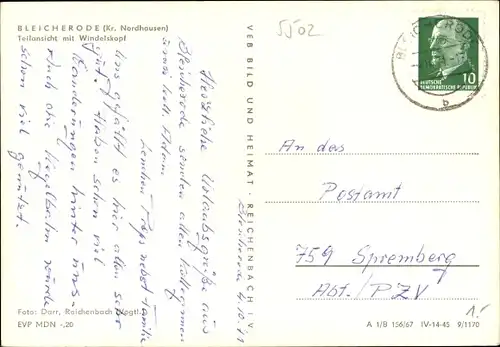 BLEICHERODE (Kr. Nordhausen)
Teilansicht mit Windelskopf
5502
BLEICHERODE
b
DEUTSCHE
DEMOKRATISCHE REPUBLIK
10
VEB BILD UND HEIMAT · REICHENBACH I. V.
Bleicherode 4.10.71
Herzliche Urlaubsgrüße aus
Bleicherode senden allen Kolleginnen
nebst Familie
Uns gefällt es hier allen sehr
gut. Haben schon viel
Wanderungen hinter uns.
Auch die Kegelbahn wurde
schon viel genutzt.
An das
Postamt
759 Spremberg
Abt. / PZV
Foto: Darr, Reichenbach (Vogtl.)
EVP MDN -,20
A 1/B 156/67 IV-14-45 9/1170
1.-